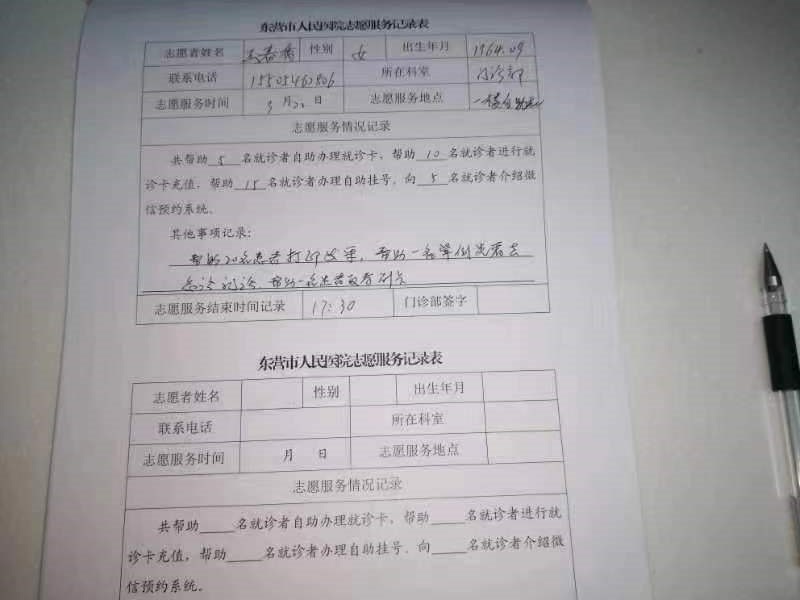 东营市人民医院志愿服务记录表
志愿者姓名 性别 女 出生年月 1964.09
联系电话 所在科室 门诊部
志愿服务时间 3月22日 志愿服务地点 一楼自助机
志愿服务情况记录
共帮助 5 名就诊者自助办理就诊卡，帮助 10 名就诊者进行就
诊卡充值，帮助 15 名就诊者办理自助挂号，向 5 名就诊者介绍微
信预约系统。
其他事项记录：
帮助20名患者打印发票，帮助一名
帮助一名患者
志愿服务结束时间记录 17:30 门诊部签字
东营市人民医院志愿服务记录表
志愿者姓名 性别 出生年月
联系电话 所在科室
志愿服务时间 月 日 志愿服务地点
志愿服务情况记录
共帮助____名就诊者自助办理就诊卡，帮助____名就诊者进行就
诊卡充值，帮助____名就诊者办理自助挂号，向____名就诊者介绍微
信预约系统。